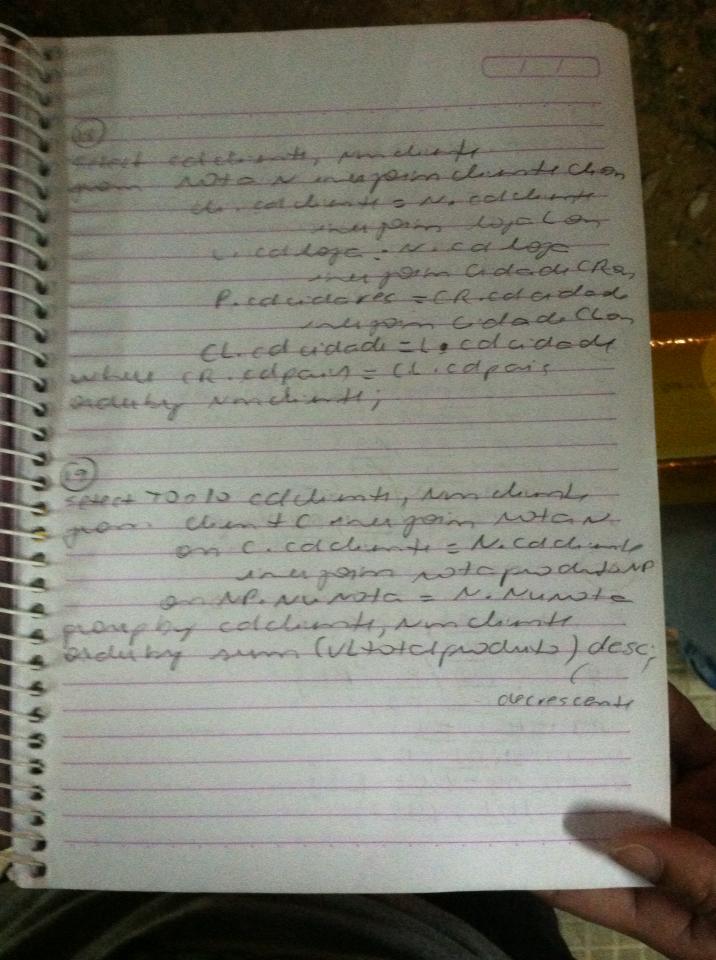 18
select cdcliente, Nmcliente
from nota N inner join cliente CL on
CL.cdcliente = N.cdcliente
inner join loja L on
L.cdloja = N.cdloja
inner join cidade CR on
P.cdcidaderes = CR.cdcidade
inner join cidade CL on
CL.cdcidade = L.cdcidade
where CR.cdpais = CL.cdpais
order by Nmcliente;
19
select TOP 10 cdcliente, Nmcliente
from cliente C inner join nota N
on C.cdcliente = N.cdcliente
inner join notaproduto NP
on NP.NuNota = N.NuNota
group by cdcliente, Nmcliente
order by sum (VLtotalproduto) desc;
decrescente